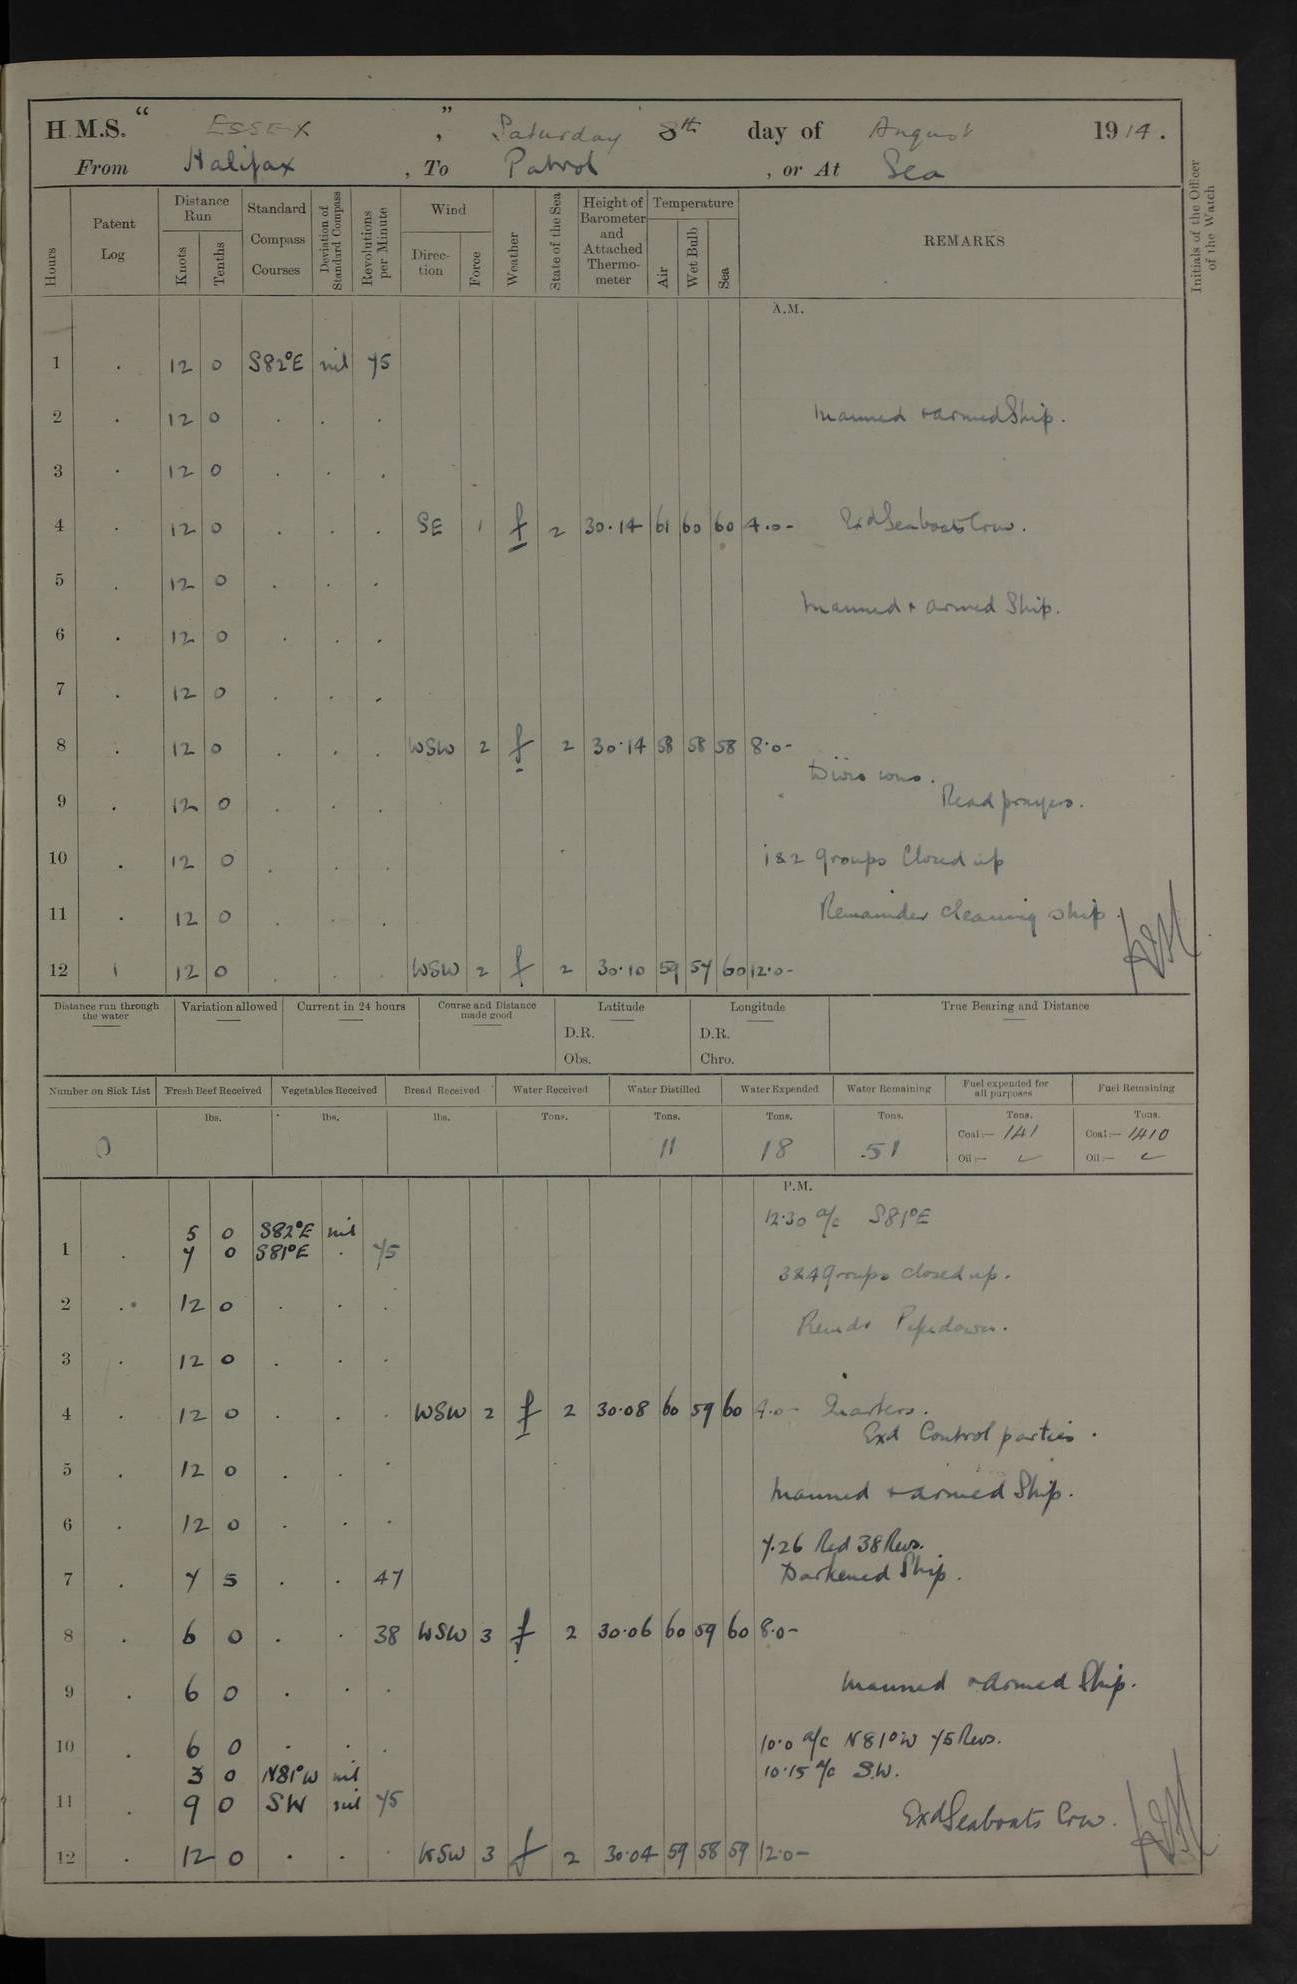 H.M.S. " ESSEX ", Saturday 8th day of August 1914.
From Halifax, To Patrol, or At Sea
Hours
Patent Log
Distance Run
Knots
Tenths
Standard Compass Courses
Deviation of Standard Compass
Revolutions per Minute
Wind
Direction
Force
Weather
State of the Sea
Height of Barometer and Attached Thermometer
Temperature
Air
Wet Bulb
Sea
REMARKS
Initials of the Officer of the Watch
A.M.
1 . 12 0 S82°E nil 75
2 . 12 0 . . . Manned & armed Ship.
3 . 12 0 . . .
4 . 12 0 . . . SE 1 f 2 30.14 61 60 60 4.0- Exd Seaboats Crew.
5 . 12 0 . . .
Manned & armed Ship.
6 . 12 0 . . .
7 . 12 0 . . .
8 . 12 0 . . . WSW 2 f 2 30.14 58 58 58 8.0-
Divisions.
9 . 12 0 . . . Read prayers.
10 . 12 0 . . . 1 & 2 groups Closed up
11 . 12 0 . . . Remainder cleaning ship.
12 1 12 0 . . . WSW 2 f 2 30.10 59 57 60 12.0-
Distance run through the water
Variation allowed
Current in 24 hours
Course and Distance made good
Latitude
D.R.
Obs.
Longitude
D.R.
Chro.
True Bearing and Distance
Number on Sick List Fresh Beef Received Vegetables Received Bread Received Water Received Water Distilled Water Expended Water Remaining Fuel expended for all purposes Fuel Remaining
lbs. lbs. lbs. Tons. Tons. Tons. Tons. Tons. Tons.
0 11 18 51 Coal:— 141 Coal:— 1410
Oil:— Oil:—
P.M.
12.30 a/c S81°E
5 0 S82°E nil
1 . 7 0 S81°E . 75
3 & 4 groups closed up.
2 . 12 0 . . .
Remdr Pipe down.
3 . 12 0 . . .
4 . 12 0 . . . WSW 2 f 2 30.08 60 59 60 4.0- Quarters.
Exd Control parties.
5 . 12 0 . . .
Manned & armed Ship.
6 . 12 0 . . .
7.26 Red 38 Revs.
7 . 7 5 . . 47 Darkened Ship.
8 . 6 0 . . 38 WSW 3 f 2 30.06 60 59 60 8.0-
9 . 6 0 . . . Manned & Armed Ship.
10 . 6 0 . . . 10.0 a/c N81°W 75 Revs.
3 0 N81°W nil 10.15 a/c S.W.
11 . 9 0 SW nil 75
Exd Seaboats Crew.
12 . 12 0 . . . WSW 3 f 2 30.04 59 58 59 12.0-